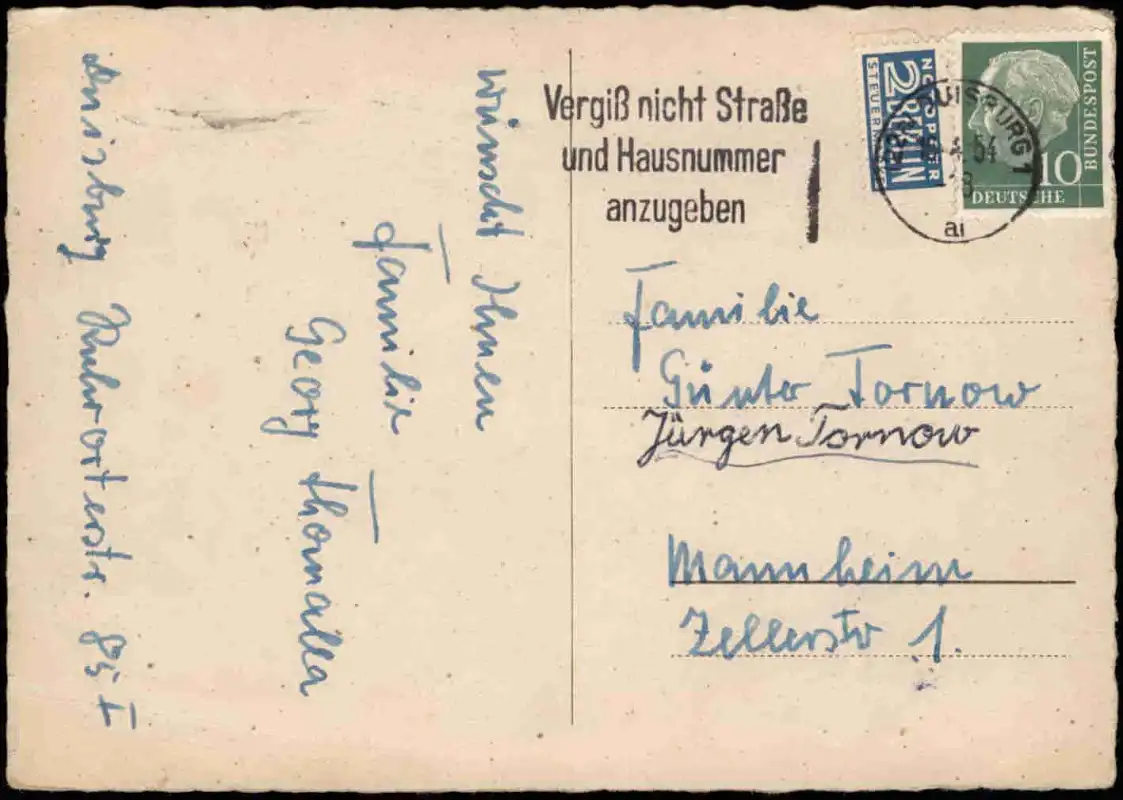 wünscht Ihnen
Familie
Georg Thomalla
Duisburg Ruhrorterstr. 85 I
Vergiß nicht Straße
und Hausnummer
anzugeben
NOTOPFER
2 BERLIN
STEUERMARKE
DUISBURG 1
54
ai
10
DEUTSCHE
BUNDESPOST
Familie
Günter Tornow
Jürgen Tornow
Mannheim
Zellerstr 1.